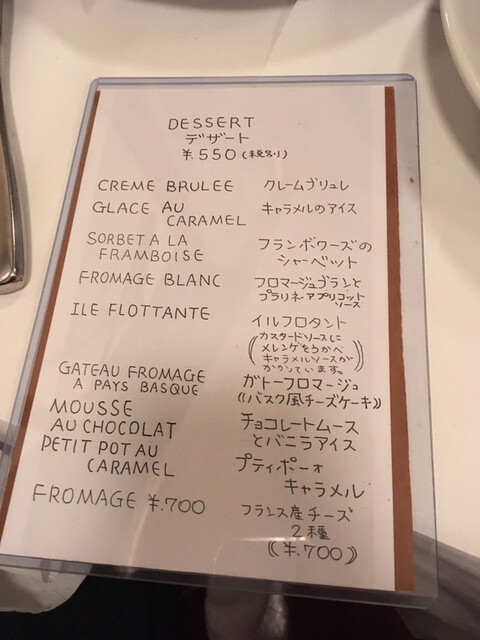 DESSERT
デザート
¥.550(税別)
CREME BRULEE クレームブリュレ
GLACE AU キャラメルのアイス
CARAMEL
SORBET A LA フランボワーズの
FRAMBOISE シャーベット
FROMAGE BLANC フロマージュブランと
プラリネ・アプリコット
ソース
ILE FLOTTANTE イルフロタント
(カスタードソースに
メレンゲをうかべ
キャラメルソースが
かかっています。)
GATEAU FROMAGE ガトーフロマージュ
A PAYS BASQUE ((バスク風チーズケーキ))
MOUSSE チョコレートムース
AU CHOCOLAT とバニラアイス
PETIT POT AU プティポーォ
CARAMEL キャラメル
FROMAGE ¥.700 フランス産チーズ
2種
((¥.700))